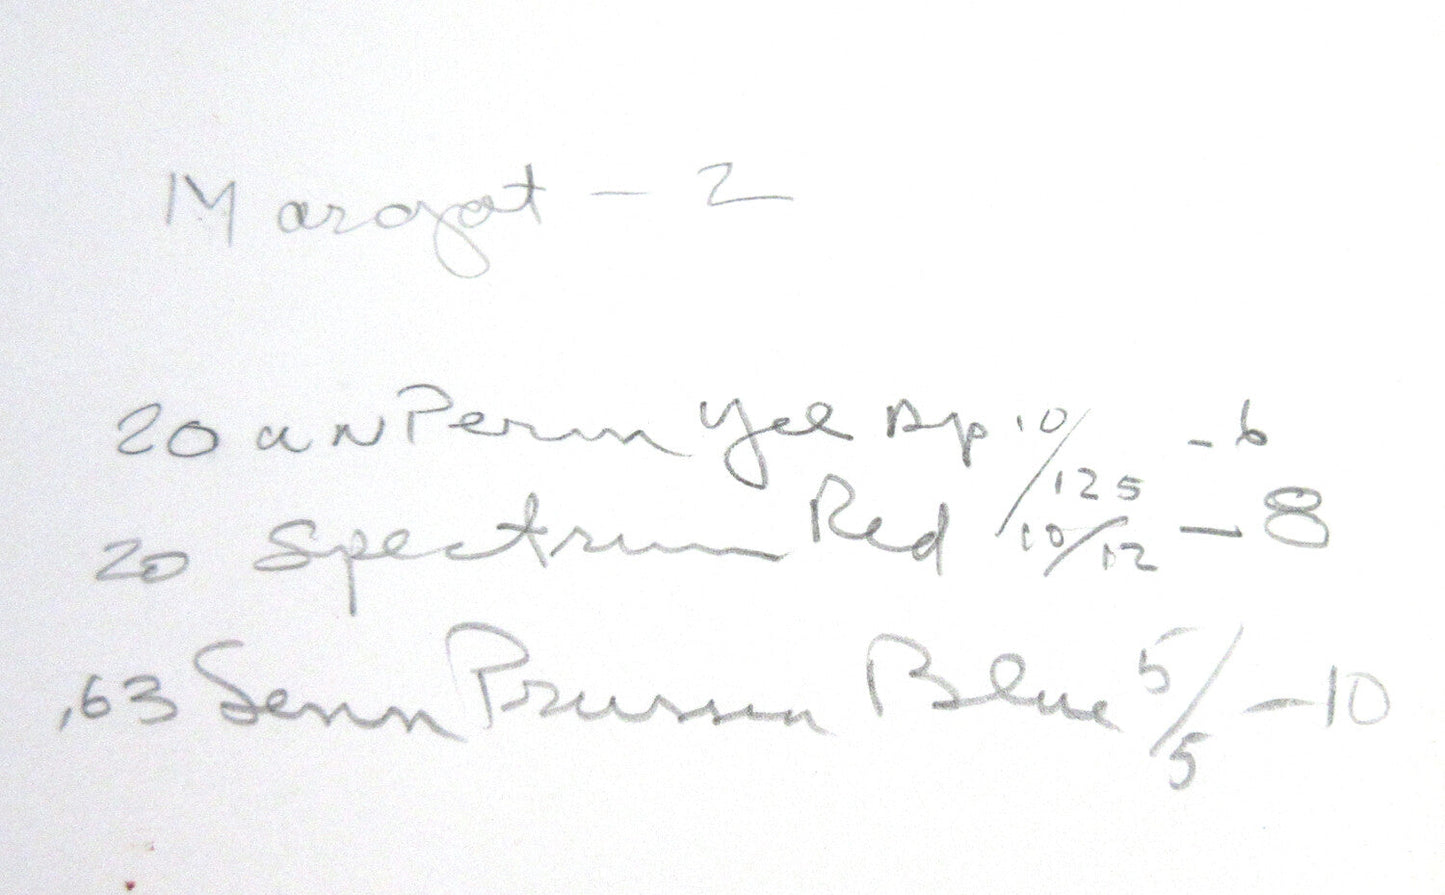 Margot – 2
20 WN Perm Yel Dp 10/125 - 6
20 Spectrum Red 10/12 – 8
.63 Senn Prussian Blue 5/5 – 10